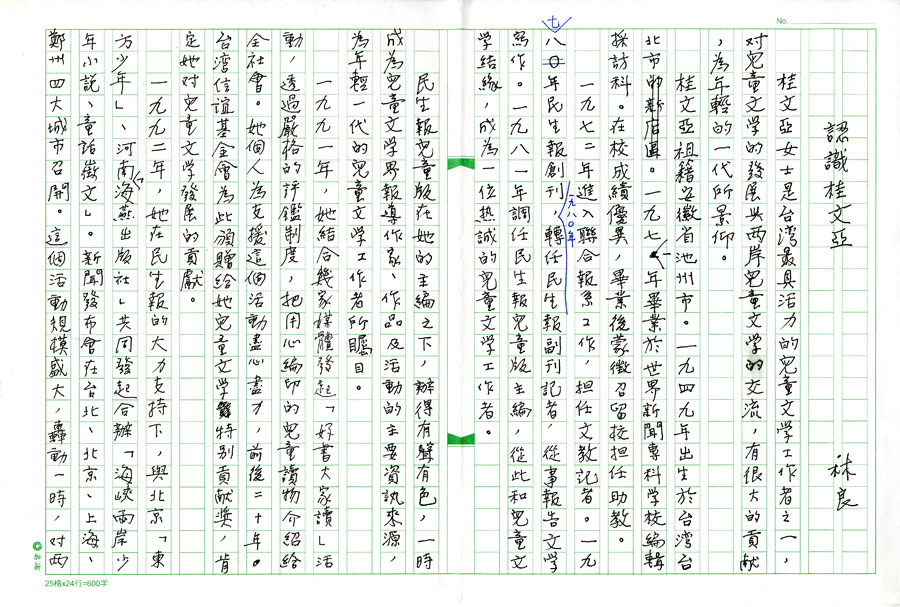 No.
認識桂文亞
林良
桂文亞女士是台灣最具活力的兒童文學工作者之一，
对兒童文學的發展与两岸兒童文學的交流，有很大的貢獻
，為年輕的一代所景仰。
桂文亞祖籍安徽省池州市。一九四九年出生於台灣台
北市的新店鎮。一九七一年畢業於世界新聞專科学校編輯
採訪科。在校成績優異，畢業後蒙徵召留校担任助教。
一九七二年進入聯合報系工作，担任文教記者。一九
七八〇年民生報創刊，一九八〇年轉任民生報副刊記者，從事報告文学
寫作。一九八一年調任民生報兒童版主編，從此和兒童文
学結緣，成為一位熱誠的兒童文学工作者。
民生報兒童版在她的主編之下，辦得有聲有色，一時
成為兒童文学界報導作家、作品及活動的主要資訊來源，
為年輕一代的兒童文学工作者所矚目。
一九九一年，她結合幾家媒體發起「好書大家讀」活
動，透過嚴格的評鑑制度，把用心編印的兒童讀物介紹給
全社會。她個人為支援這個活動盡心盡力，前後二十年。
台灣信誼基金會為此頒贈給她兒童文学特別貢献獎，肯
定她对兒童文学發展的貢獻。
一九九二年，她在民生報的大力支持下，與北京「東
方少年」、河南「海燕出版社」共同發起合辦「海峽兩岸少
年小説、童話徵文」。新聞發布會在台北、北京、上海、
鄭州四大城市召開。這個活動規模盛大，轟動一時，对两
25格x24行=600字